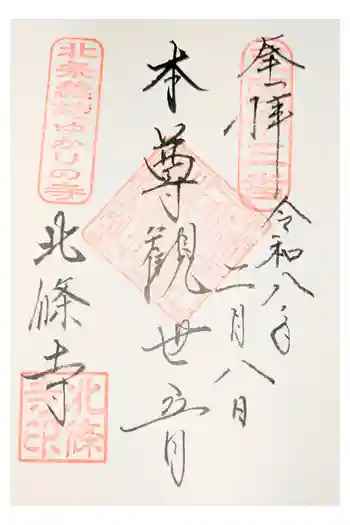 奉拝
令和八年
二月八日
本尊觀世音
北条義時ゆかりの寺
北條寺
北條
寺印